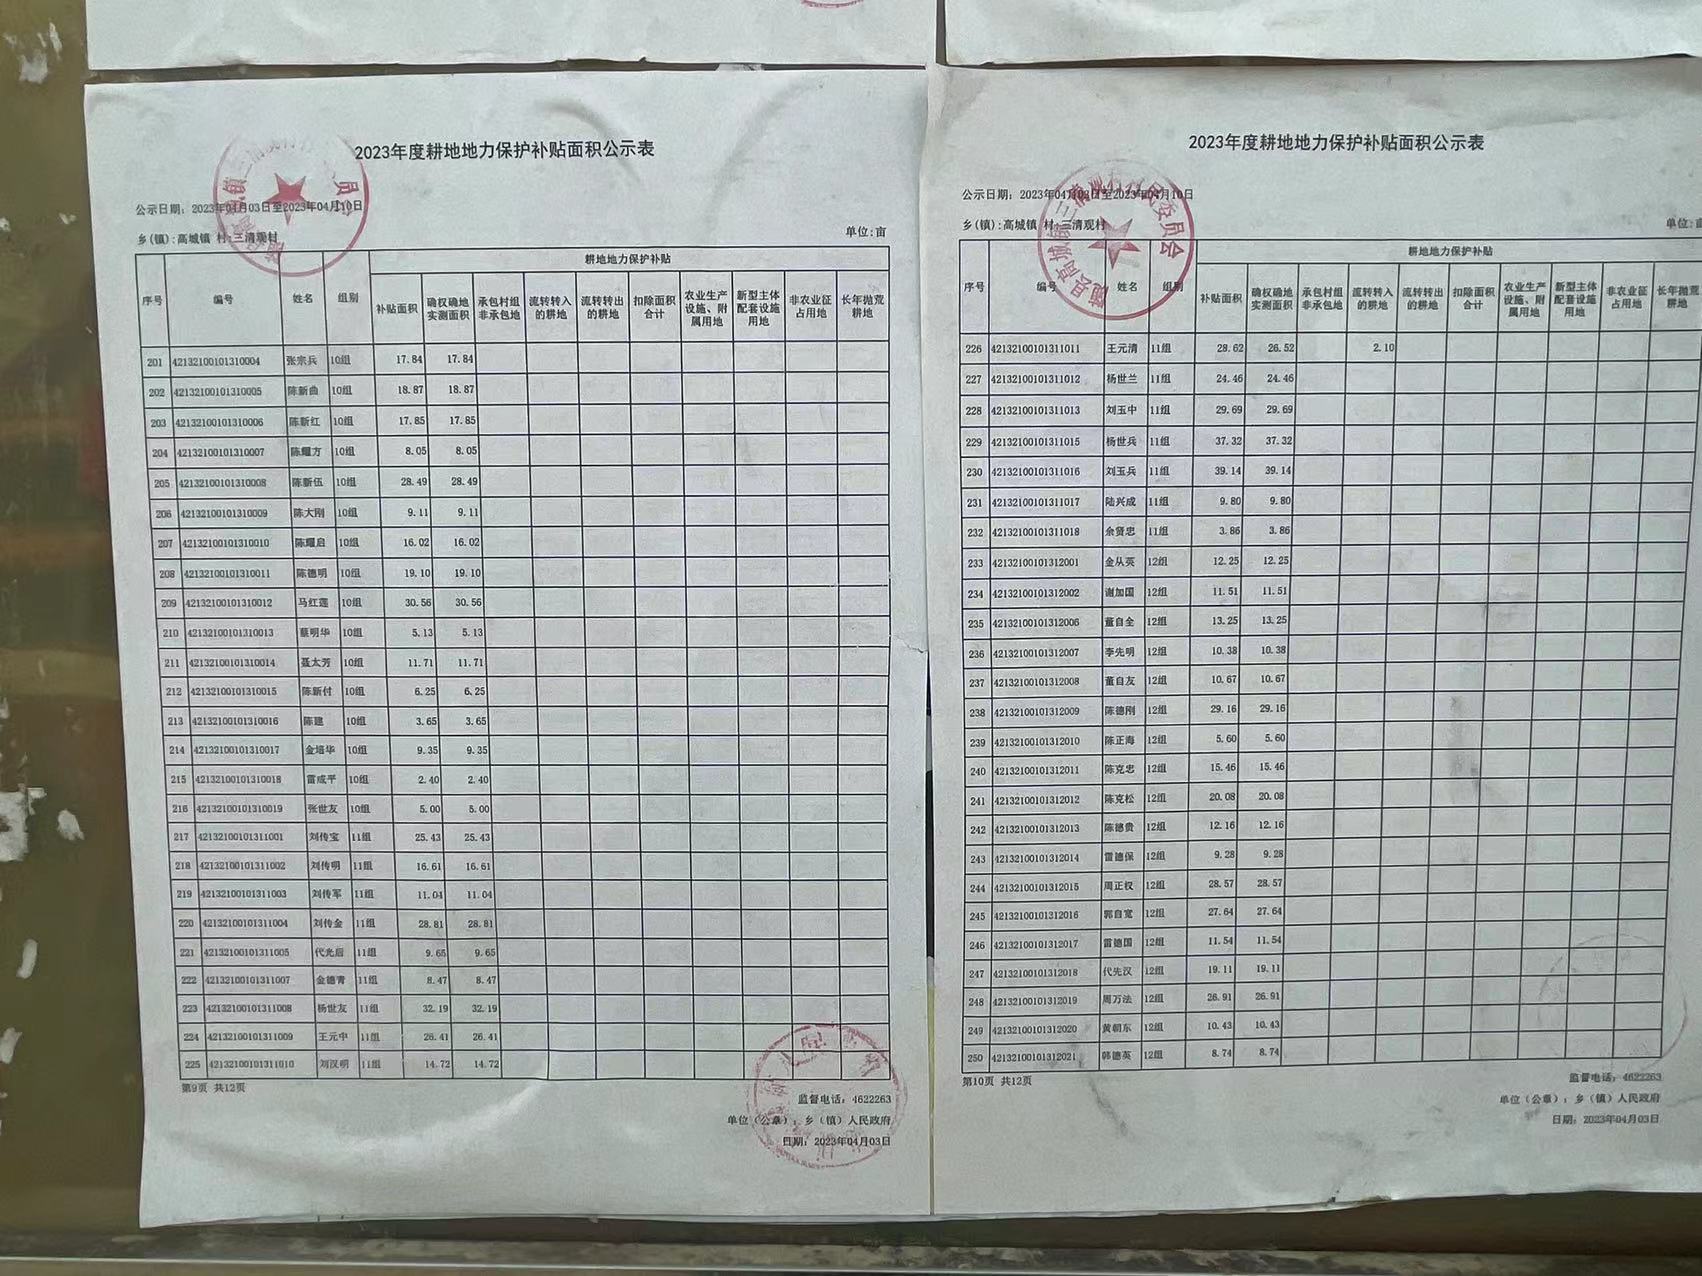 2023年度耕地地力保护补贴面积公示表
公示日期：2023年04月03日至2023年04月10日
乡(镇):高城镇 村:三清观村
单位:亩
耕地地力保护补贴
序号 编号 姓名 组别 补贴面积 确权确地实测面积 承包村组非承包地 流转转入的耕地 流转转出的耕地 扣除面积合计 农业生产设施、附属用地 新型主体配套设施用地 非农业征占用地 长年抛荒耕地
201 42132100101310004 张宗兵 10组 17.84 17.84
202 42132100101310005 陈新曲 10组 18.87 18.87
203 42132100101310006 陈新红 10组 17.85 17.85
204 42132100101310007 陈耀方 10组 8.05 8.05
205 42132100101310008 陈新伍 10组 28.49 28.49
206 42132100101310009 陈大刚 10组 9.11 9.11
207 42132100101310010 陈耀启 10组 16.02 16.02
208 42132100101310011 陈德明 10组 19.10 19.10
209 42132100101310012 马红莲 10组 30.56 30.56
210 42132100101310013 蔡明华 10组 5.13 5.13
211 42132100101310014 聂太芳 10组 11.71 11.71
212 42132100101310015 陈新付 10组 6.25 6.25
213 42132100101310016 陈建 10组 3.65 3.65
214 42132100101310017 金培华 10组 9.35 9.35
215 42132100101310018 雷成平 10组 2.40 2.40
216 42132100101310019 张世友 10组 5.00 5.00
217 42132100101311001 刘传宝 11组 25.43 25.43
218 42132100101311002 刘传明 11组 16.61 16.61
219 42132100101311003 刘传军 11组 11.04 11.04
220 42132100101311004 刘传金 11组 28.81 28.81
221 42132100101311005 代光后 11组 9.65 9.65
222 42132100101311007 金德青 11组 8.47 8.47
223 42132100101311008 杨世友 11组 32.19 32.19
224 42132100101311009 王元中 11组 26.41 26.41
225 42132100101311010 刘汉明 11组 14.72 14.72
第9页 共12页
监督电话：4622263
单位（公章）：乡（镇）人民政府
日期：2023年04月03日
2023年度耕地地力保护补贴面积公示表
公示日期：2023年04月03日至2023年04月10日
乡(镇):高城镇 村:三清观村
单位:亩
耕地地力保护补贴
序号 编号 姓名 组别 补贴面积 确权确地实测面积 承包村组非承包地 流转转入的耕地 流转转出的耕地 扣除面积合计 农业生产设施、附属用地 新型主体配套设施用地 非农业征占用地 长年抛荒耕地
226 42132100101311011 王元清 11组 28.62 26.52 2.10
227 42132100101311012 杨世兰 11组 24.46 24.46
228 42132100101311013 刘玉中 11组 29.69 29.69
229 42132100101311015 杨世兵 11组 37.32 37.32
230 42132100101311016 刘玉兵 11组 39.14 39.14
231 42132100101311017 陆兴成 11组 9.80 9.80
232 42132100101311018 余贤忠 11组 3.86 3.86
233 42132100101312001 金从英 12组 12.25 12.25
234 42132100101312002 谢加国 12组 11.51 11.51
235 42132100101312006 董自全 12组 13.25 13.25
236 42132100101312007 李先明 12组 10.38 10.38
237 42132100101312008 董自友 12组 10.67 10.67
238 42132100101312009 陈德刚 12组 29.16 29.16
239 42132100101312010 陈正海 12组 5.60 5.60
240 42132100101312011 陈克忠 12组 15.46 15.46
241 42132100101312012 陈克松 12组 20.08 20.08
242 42132100101312013 陈德贵 12组 12.16 12.16
243 42132100101312014 雷德保 12组 9.28 9.28
244 42132100101312015 周正权 12组 28.57 28.57
245 42132100101312016 郭自宽 12组 27.64 27.64
246 42132100101312017 雷德国 12组 11.54 11.54
247 42132100101312018 代先汉 12组 19.11 19.11
248 42132100101312019 周万法 12组 26.91 26.91
249 42132100101312020 黄朝东 12组 10.43 10.43
250 42132100101312021 韩德英 12组 8.74 8.74
第10页 共12页
监督电话：4622263
单位（公章）：乡（镇）人民政府
日期：2023年04月03日
随县高城镇三清观村村民委员会